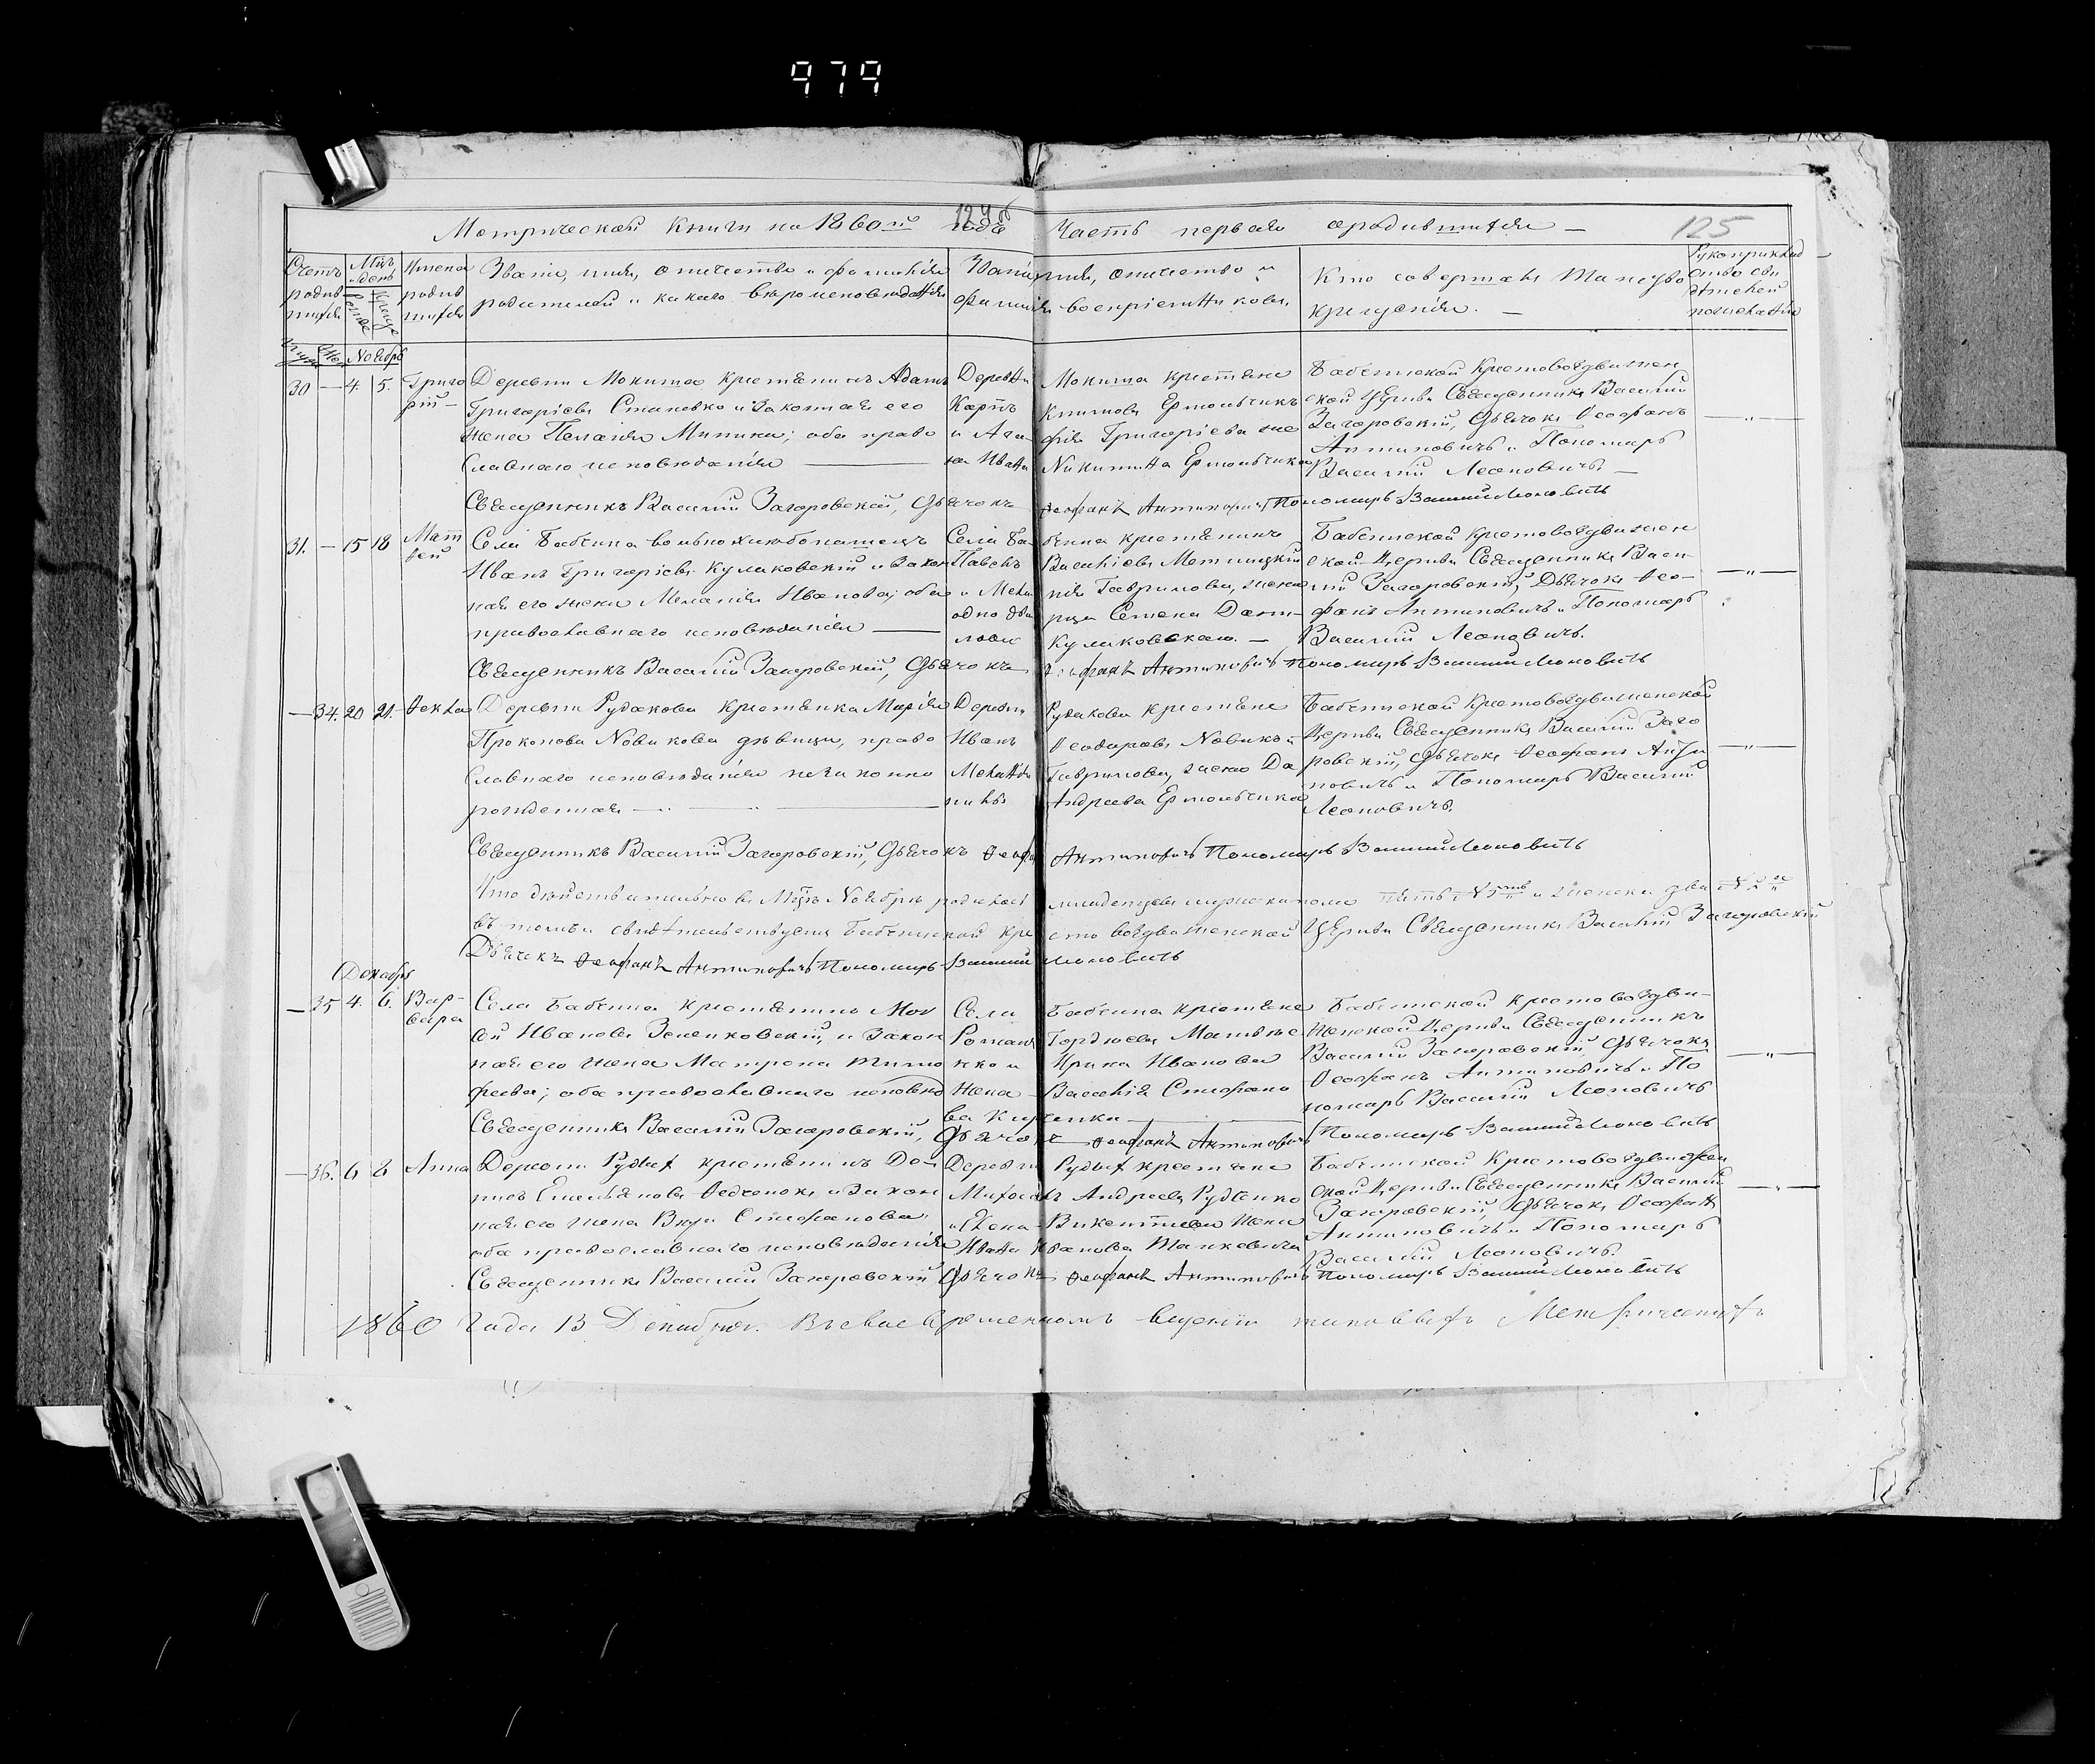 979
Метрической Книги на 1860й года Часть первая о родившихся —
124об
125
Счетъ родившихся
Мцъ и день
Имена родившихся
Званіе, имя, отчество и фамилія
родителей и какого вѣроисповѣданія
Званіе, имя, отчество и
фамилія воспріемниковъ.
Кто совершалъ Таинство
крещенія. —
Рукоприкладство свидѣтелей
по желанію
Ноябрь
30 — 4. 5. Григорій —
Деревни Мокишева крестьянинъ Адамъ
Григоріевъ Станевко и законная его
жена Пелагія Минина; оба право
славнаго исповѣданія —
Деревни Мокиша крестьяне
Карпъ Климовъ Ермольчикъ
и Агафія Григоріева же
на Ивана Никитина Ермольчика
Бабчинской Крестовоздвижен
ской Церкви Священникъ Василій
Загоровскій, Дьячокъ Ѳеофанъ
Антиповичъ и Пономарь
Василій Леоновичъ. —
Священникъ Василій Загоровскій, Дьячокъ Ѳеофанъ Антиповичъ Пономарь Василій Леоновичъ
31. — 15 18 Матѳей
Села Бабчина вольнохлебопашецъ
Иванъ Григоріевъ Куликовскій и закон
ная его жена Меланія Иванова; оба
православнаго исповѣданія —
Села Бабчина крестьянинъ
Павелъ Васильевъ Метлицкій
и Мелания Гаврилова, жена
однодворца Семена Дани
лова Куликовскаго. —
Бабчинской Крестовоздвижен
ской Церкви Священникъ Васи
лій Загоровскій, Дьячокъ Ѳео-
фанъ Антиповичъ и Пономарь
Василій Леоновичъ.
Священникъ Василій Загоровскій, Дьячокъ Ѳеофанъ Антиповичъ Пономарь Василій Леоновичъ
— 34. 20 21. Ѳекла
Деревни Рудакова крестьянка Марія
Прокопова Новикова дѣвица, право
славнаго исповѣданія незаконно
рожденная —
Деревни Рудакова крестьяне
Иванъ Ѳеодоровъ Новикъ и
Гаврилова, жена Да
нилы Андреева Ермольчика
Бабчинской Крестовоздвиженской
Церкви Священникъ Василій Заго
ровскій, Дьячокъ Ѳеофанъ Анти
повичъ и Пономарь Василій
Леоновичъ.
Священникъ Василій Загоровскій, Дьячокъ Ѳеофанъ Антиповичъ Пономарь Василій Леоновичъ
Что дѣйствительно въ Мцѣ Ноябрѣ родилось младенцевъ мужеска пола пять №5ть и женска два №2а
въ томъ и свидѣтельствуемъ Бабчинской Крестовоздвиженской Церкви Священникъ Василій Загоровскій
Дьячокъ Ѳеофанъ Антиповичъ Пономарь Василій Леоновичъ
Декабрь
— 35 4. 6. Варвара
Села Бабчина крестьянинъ Мои
сей Ивановъ Зеленковскій, и закон
ная его жена Матрона Тимо
феева; оба православнаго исповѣд
Села Бабчина крестьяне
Романъ Гордѣевъ Матвѣе
нко и Ирина Иванова
жена Василія Стефано
ва Кириенка —
Бабчинской Крестовоздви-
женской Церкви Священникъ
Василій Загоровскій, Дьячокъ
Ѳеофанъ Антиповичъ и По
номарь Василій Леоновичъ
Священникъ Василій Загоровскій, Дьячокъ Ѳеофанъ Антиповичъ Пономарь Василій Леоновичъ
— 36. 6 8 Анна
Деревни Рудыхъ крестьянинъ Де
Емельяновъ Ѳедченокъ и закон
ная его жена Вѣра Стефанова;
оба православнаго исповѣданія
Деревни Рудыхъ крестьяне
Михаилъ Андреевъ Рудченко
и Елена Викентиева жена
Ивана Иванова Танкевича
Бабчинской Крестовоздвижен
ской Церкви Священникъ Василій
Загоровскій, Дьячокъ Ѳеофанъ
Антиповичъ и Пономарь
Василій Леоновичъ.
Священникъ Василій Загоровскій Дьячокъ Ѳеофанъ Антиповичъ Пономарь Василій Леоновичъ
1860 Года 13 Декабря. Въ своевременномъ веденіи таковыхъ Метрическихъ